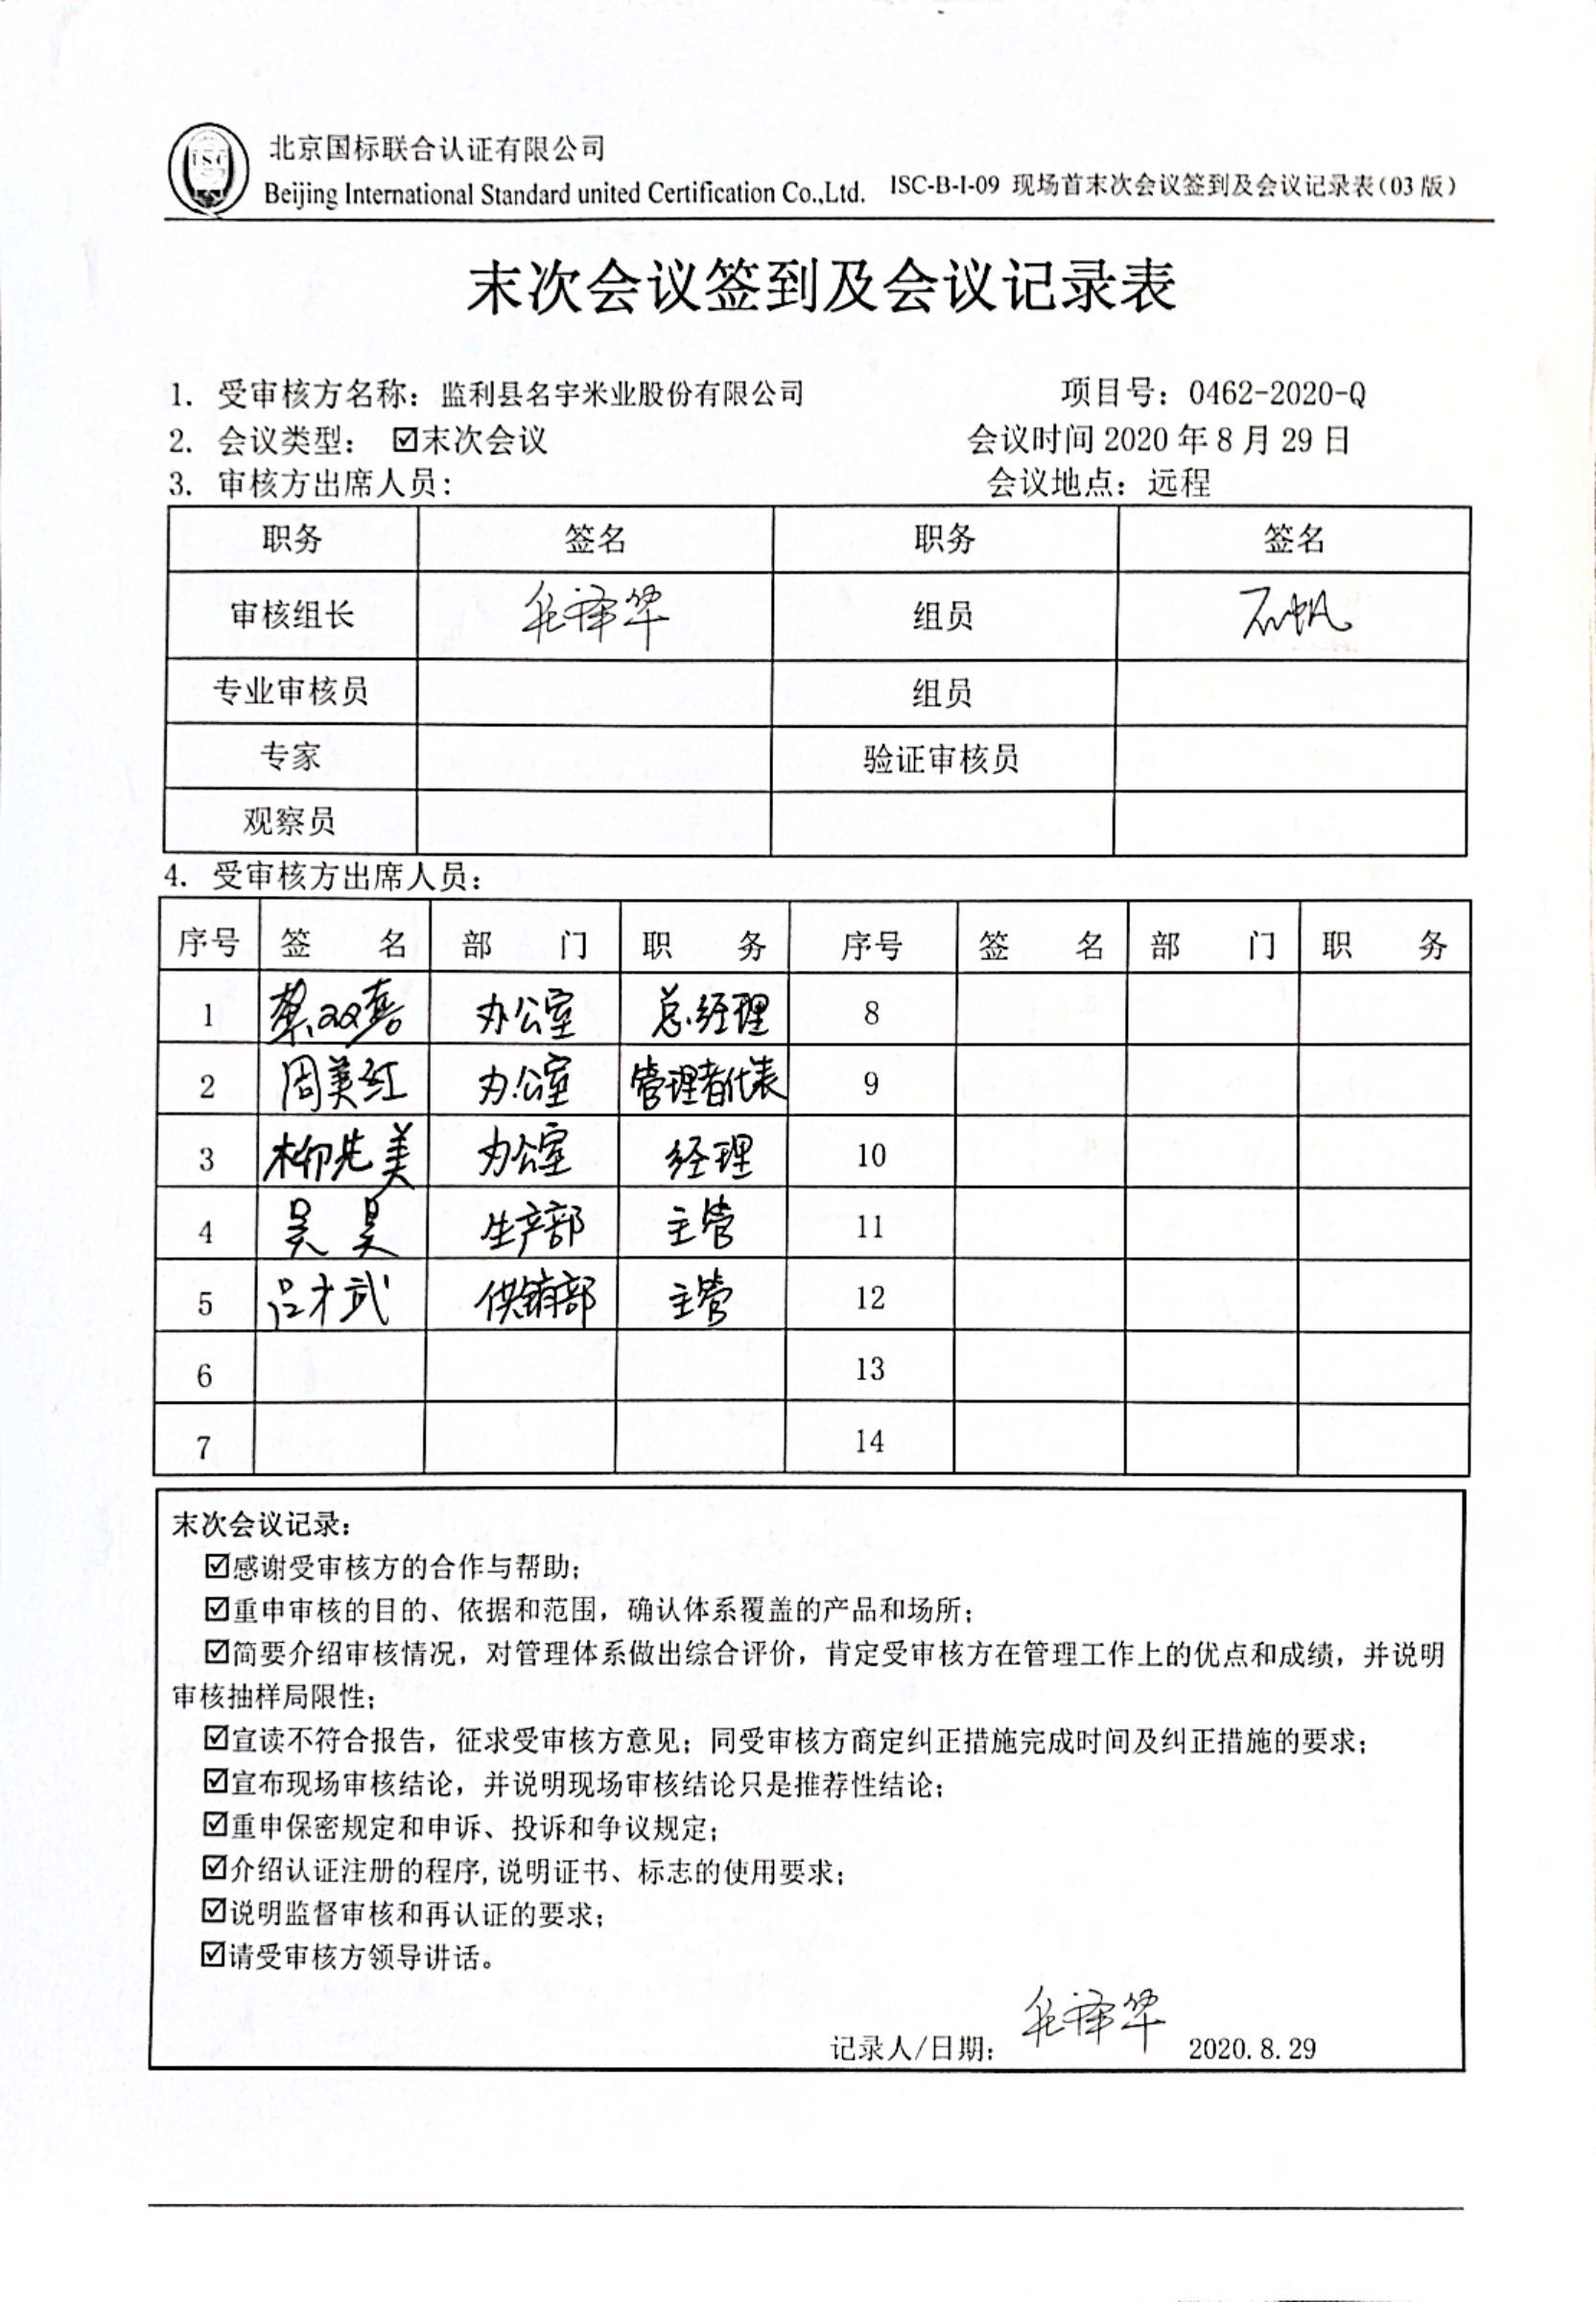 北京国标联合认证有限公司
Beijing International Standard united Certification Co.,Ltd. ISC-B-I-09 现场首末次会议签到及会议记录表(03版)
末次会议签到及会议记录表
1. 受审核方名称：监利县名宇米业股份有限公司 项目号：0462-2020-Q
2. 会议类型： ☑末次会议 会议时间 2020 年 8 月 29 日
3. 审核方出席人员： 会议地点：远程
职务 签名 职务 签名
审核组长 组员
专业审核员 组员
专家 验证审核员
观察员
4. 受审核方出席人员：
序号 签 名 部 门 职 务 序号 签 名 部 门 职 务
1 蔡双喜 办公室 总经理 8
2 周美红 办公室 管理者代表 9
3 柳先美 办公室 经理 10
4 吴昊 生产部 主管 11
5 吕才武 供销部 主管 12
6 13
7 14
末次会议记录：
☑感谢受审核方的合作与帮助；
☑重申审核的目的、依据和范围，确认体系覆盖的产品和场所；
☑简要介绍审核情况，对管理体系做出综合评价，肯定受审核方在管理工作上的优点和成绩，并说明
审核抽样局限性；
☑宣读不符合报告，征求受审核方意见；同受审核方商定纠正措施完成时间及纠正措施的要求；
☑宣布现场审核结论，并说明现场审核结论只是推荐性结论；
☑重申保密规定和申诉、投诉和争议规定；
☑介绍认证注册的程序,说明证书、标志的使用要求；
☑说明监督审核和再认证的要求；
☑请受审核方领导讲话。
记录人/日期： 2020.8.29